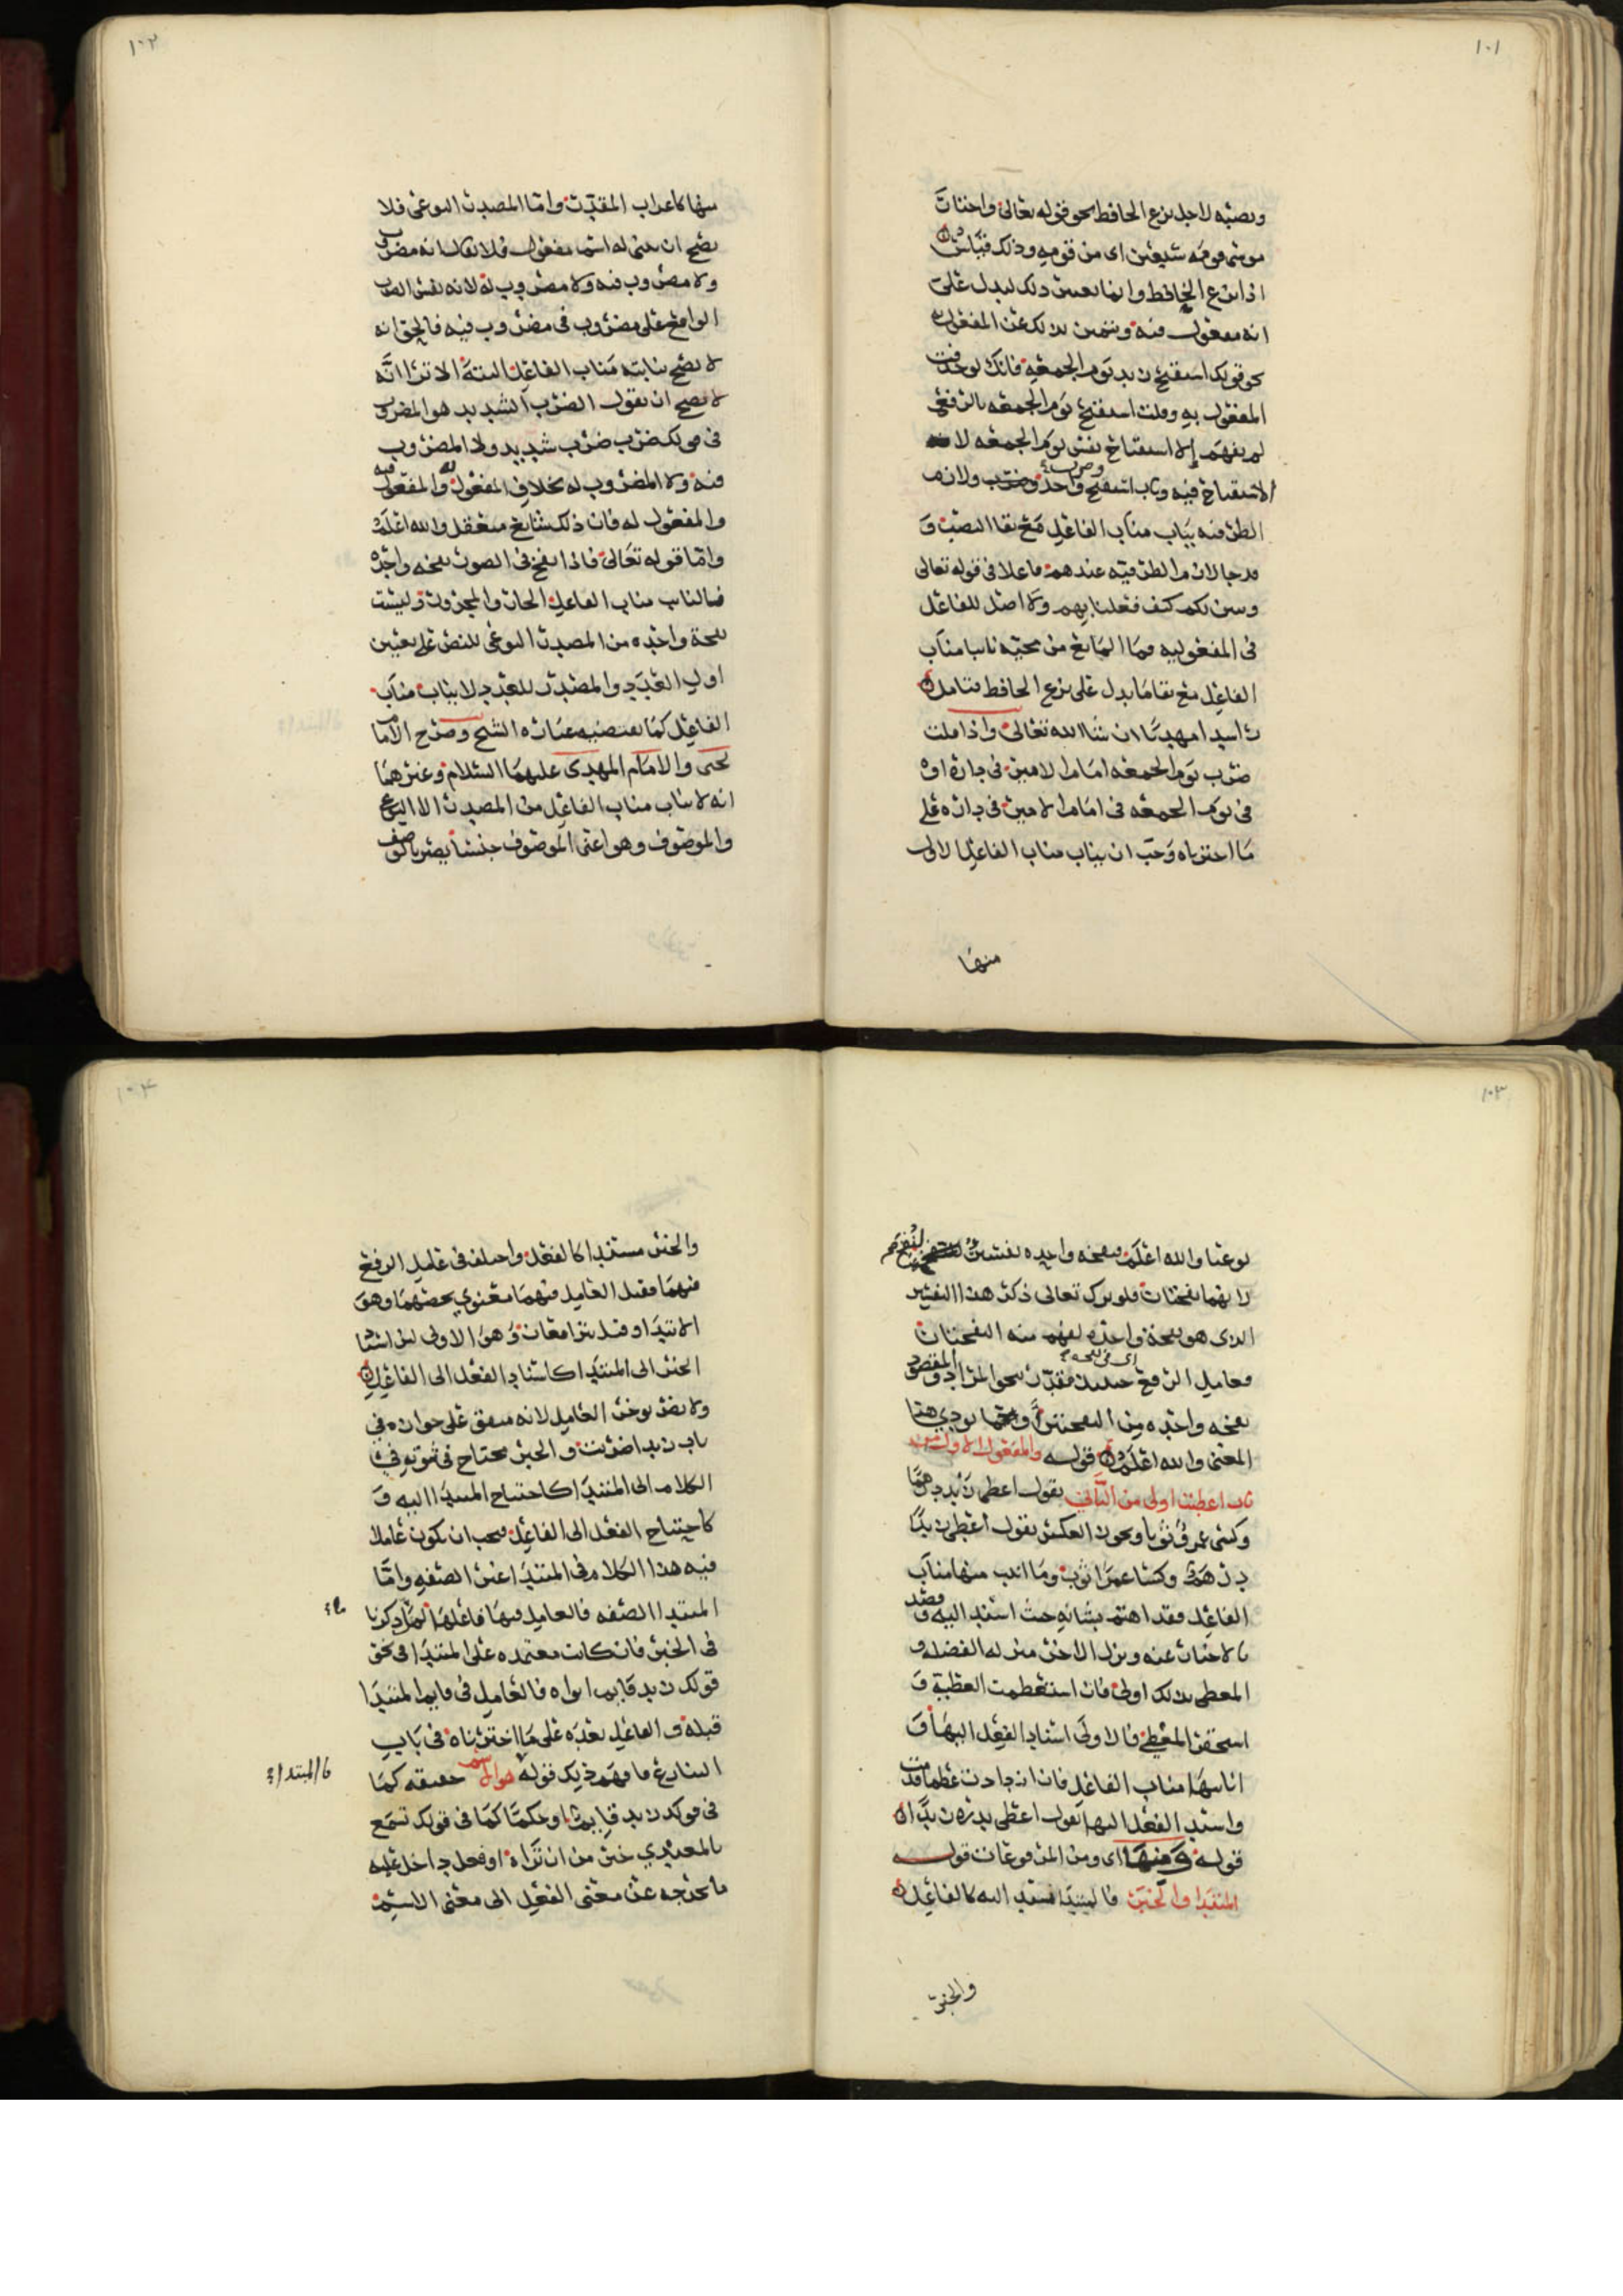 ١٠١
ونصبه لاجل نزع الخافظ نحو قوله تعالى واختار
موسى قومه سبعين اى من قومه وذلك قياس
اذا نزع الخافظ وانما تعين ذلك ليدل على
انه مفعول فيه وتميز بذلك عن المفعول به
نحو قولك استفتح زيد يوم الجمعه فانك لو حذفت
المفعول به وقلت استفتح يوم الجمعه بالرفع
لم يفهم الا استفتاح نفس يوم الجمعه لا
الاستفتاح فيه وباب استفتح واحد وضرب ولان
الظرف فيه يناب مناب الفاعل مع بقا النصب و
قد جا لازما لظرفيته عندهم فاعلا فى قوله تعالى
وتبين لكم كيف فعلنا بهم ولا اصل للفاعل
فى المفعوليه فما المانع من مجيه نايبا مناب
الفاعل مع بقا ما يدل على نزع الخافظ فتامل
راسيدا مهديا ان شاالله تعالى واذا قلت
ضرب يوم الجمعه امام الامير فى داره او
فى يوم الجمعه فى امام الامير فى داره على
ما اخترناه وجب ان يناب مناب الفاعل الاول
منها
١٠٢
منها كاعراب المقدر واما المصدر النوعى فلا
يصح ان يبنى له اسم مفعول فلا يقال انه مضروب
ولا مضروب فيه ولا مضروب له لانه نفس الضرب
الواقع على مضروب فى مضروب فيه فالحق انه
لا يصح نيابته مناب الفاعل البتة الا ترا انَّه
لا يصح ان يقول الضرب الشديد هو المضروب
فى قولك ضرب ضرب شديد ولا المضروب
فيه ولا المضروب له بخلاف المفعول به والمفعول فيه
والمفعول له فان ذلك شايع متعقل والله اعلم
واما قوله تعالى فاذا نفخ فى الصور نفخه واحده
فالنايب مناب الفاعل الجار والمجرور وليست
نفخة واحده من المصدر النوعى للنص على تعيين
اول العدد والمصدر للعدد لا يناب مناب
الفاعل كما تقتضيه عباره الشيخ وصرح الامام
يحيى والامام المهدى عليهما السلام وغيرهما
انه لا يناب مناب الفاعل من المصدر الا النوعى
والموصوف وهو اعنى الموصوف جنسا يصير بالوصف
١٠٣
نوعيا والله اعلم فنفخه واحده تفسير
لانهما نفختان فلو ترك تعالى ذكر هذا التفسير
الذى هو نفخة واحده لفهم منه النفختان
فعامل الرفع حينيذ مقدر نحو المراد والمقصود
اى فى نفخه
نفخه واحده من النفختين او نحوها يودي هذا
المعنى والله اعلم قوله والمفعول الاول من
باب اعطيت اولى من الثاني تقول اعطى زيد درهما
وكسى عمرو ثوبا ويجوز العكس تقول اعطى زيدًا
درهم وكسا عمرًا ثوب وما انيب منها مناب
الفاعل فقد اهتم بشانه حيث اسند اليه وقصد
بالاخبار عنه ونزل الاخر منزله الفضله و
المعطى بذلك اولى فان استعظمت العطية و
استحقر المعطى فالاولى اسناد الفعل اليها و
انابتها مناب الفاعل فان ازدادت عظما قدمت
واسند الفعل اليها تقول اعطى بدره زيدًا
قوله ومنها اى ومن المرفوعات قوله
المبتدا والخبر فالمبتدا مسند اليه كالفاعل
والخبر
١٠٤
والخبر مستندا كالفعل واختلف فى عامل الرفع
فيهما فقيل العامل فيهما معنوي يخصهما وهو
الابتدا وقيل يترافعان وهو الاولى لان اسناد
الخبر الى المبتدا كاسناد الفعل الى الفاعل
ولا يضر توخر العامل لانه متفق على جوازه في
باب زيدا ضربت والخبر محتاج فى ثبوته في
الكلام الى المبتدا كاحتياج المسند اليه و
كاحتياج الفعل الى الفاعل فيجب ان يكون عاملا
فيه هذا الكلام فى المبتدا غير الصفه وامَّا
المبتدا الصفه فالعامل فيها فاعلها لما ذكرنا
فى الخبر فان كانت معتمده على المبتدا فى نحو
قولك زيد قايم ابواه فالعامل فى قايم المبتدا
قبله والفاعل بعده على ما اخترناه فى باب
التنازع فافهم ذلك قوله هو الاسم حقيقه كما
فالمبتدا
فى قولك زيد قايم او حكما كما فى قولك تسمع
بالمعيدي خير من ان تراه او فعل داخل عليه
ما يخرجه عن معنى الفعل الى معنى الاسم